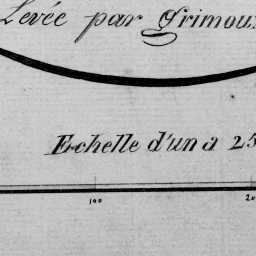 Levée par Grimoux
Echelle d'un a 25
100 20